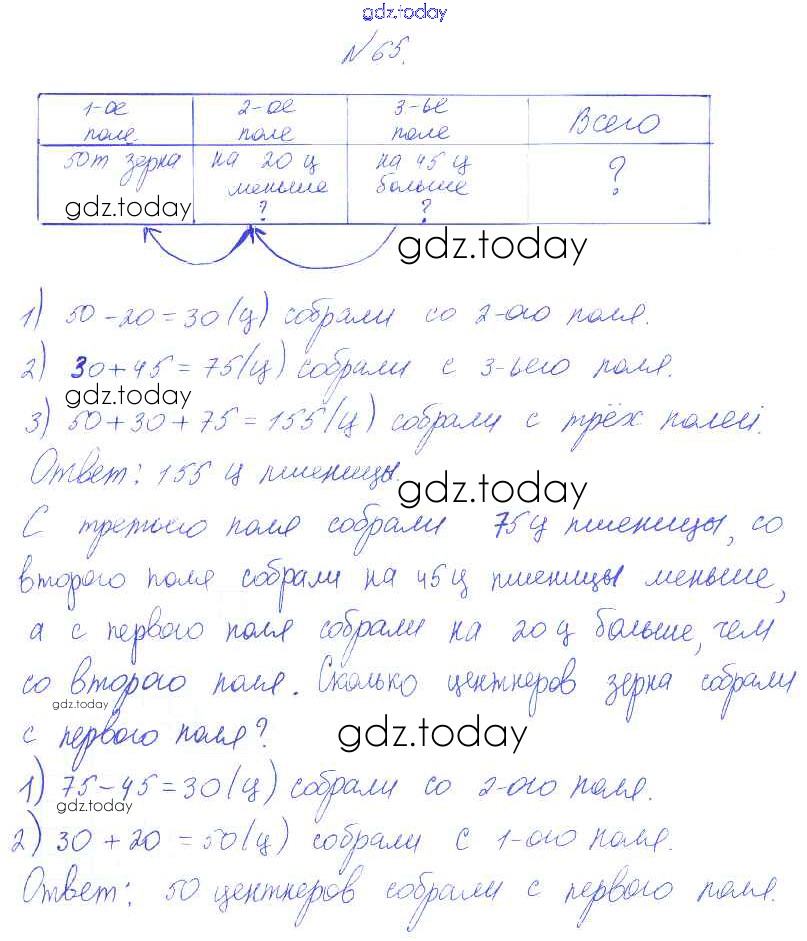 gdz.today
№65.
1-ое поле 2-ое поле 3-ье поле Всего
50т зерна на 20 ц меньше ? на 45 ц больше ? ?
gdz.today
gdz.today
1) 50-20=30(ц) собрали со 2-ого поля.
2) 30+45=75(ц) собрали с 3-ьего поля.
gdz.today
3) 50+30+75=155(ц) собрали с трёх полей.
Ответ: 155 ц пшеницы.
gdz.today
С третьего поля собрали 75ц пшеницы, со
второго поля собрали на 45ц пшеницы меньше,
а с первого поля собрали на 20ц больше, чем
со второго поля. Сколько центнеров зерна собрали
gdz.today
с первого поля?
gdz.today
1) 75-45=30(ц) собрали со 2-ого поля.
gdz.today
2) 30+20=50(ц) собрали с 1-ого поля.
Ответ: 50 центнеров собрали с первого поля.